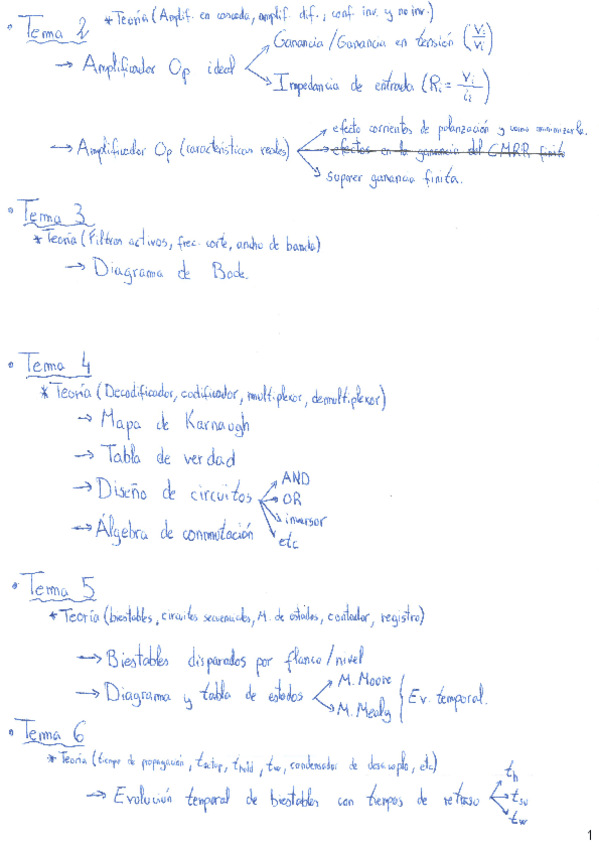 • Tema 2 * Teoría (Amplif. en cascada, amplif. dif., conf. inv. y no inv.)
→ Amplificador Op ideal
Ganancia/Ganancia en tensión
Impedancia de entrada (Ri = Vi/ii)
→ Amplificador Op (características reales)
efecto corrientes de polarización y como minimizarla.
efectos en la ganancia del CMRR finito
suponer ganancia finita.
• Tema 3
* Teoría (Filtros activos, frec. corte, ancho de banda)
→ Diagrama de Bode
• Tema 4
* Teoría (Decodificador, codificador, multiplexor, demultiplexor)
→ Mapa de Karnaugh
→ Tabla de verdad
→ Diseño de circuitos
AND
OR
inversor
etc
→ Álgebra de conmutación
• Tema 5
* Teoría (biestables, circuitos secuenciales, M. de estados, contador, registro)
→ Biestables disparados por flanco/nivel
→ Diagrama y tabla de estados
M. Moore
M. Mealy
Ev. temporal.
• Tema 6
* Teoría (tiempo de propagación, tsetup, thold, tw, condensador de desacoplo, etc)
→ Evolución temporal de biestables con tiempos de retraso
th
tsu
tw
1